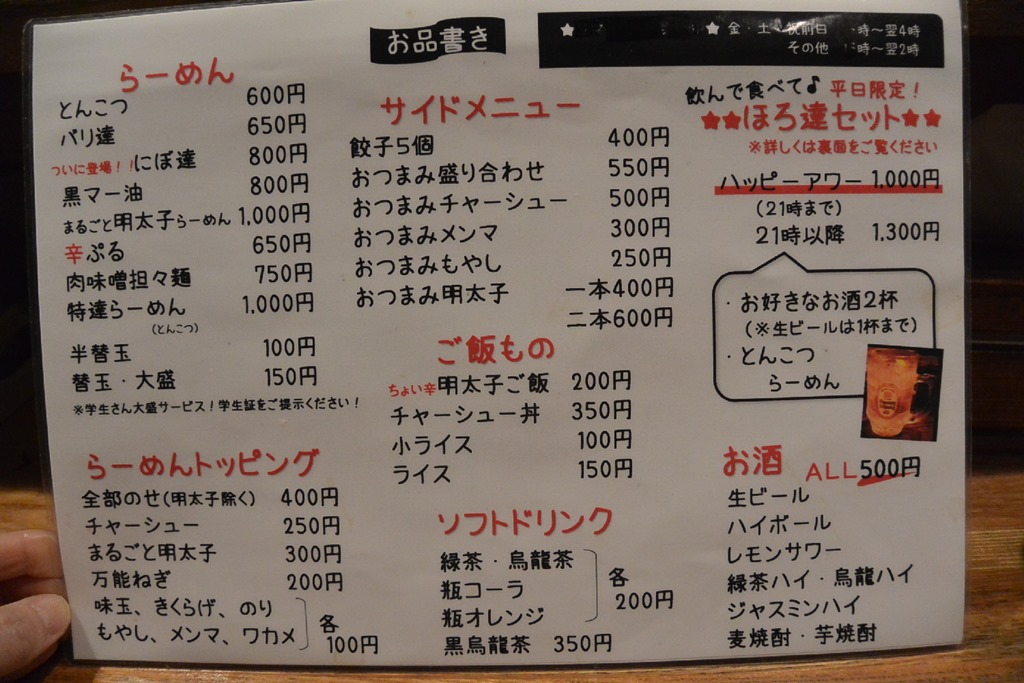 お品書き
★ ★ 金・土・祝前日 時～翌4時
その他 時～翌2時
らーめん
とんこつ 600円
バリ達 650円
ついに登場！！にぼ達 800円
黒マー油 800円
まるごと明太子らーめん 1,000円
辛ぷる 650円
肉味噌担々麺 750円
特達らーめん 1,000円
(とんこつ)
半替玉 100円
替玉・大盛 150円
※学生さん大盛サービス！学生証をご提示ください！
らーめんトッピング
全部のせ(明太子除く) 400円
チャーシュー 250円
まるごと明太子 300円
万能ねぎ 200円
味玉、きくらげ、のり
もやし、メンマ、ワカメ 各100円
サイドメニュー
餃子5個 400円
おつまみ盛り合わせ 550円
おつまみチャーシュー 500円
おつまみメンマ 300円
おつまみもやし 250円
おつまみ明太子 一本400円
二本600円
ご飯もの
ちょい辛明太子ご飯 200円
チャーシュー丼 350円
小ライス 100円
ライス 150円
ソフトドリンク
緑茶・烏龍茶
瓶コーラ 各200円
瓶オレンジ
黒烏龍茶 350円
飲んで食べて♪ 平日限定！
★★ほろ達セット★★
※詳しくは裏面をご覧ください
ハッピーアワー 1.000円
(21時まで)
21時以降 1.300円
・お好きなお酒2杯
(※生ビールは1杯まで)
・とんこつ
らーめん
お酒 ALL500円
生ビール
ハイボール
レモンサワー
緑茶ハイ・烏龍ハイ
ジャスミンハイ
麦焼酎・芋焼酎